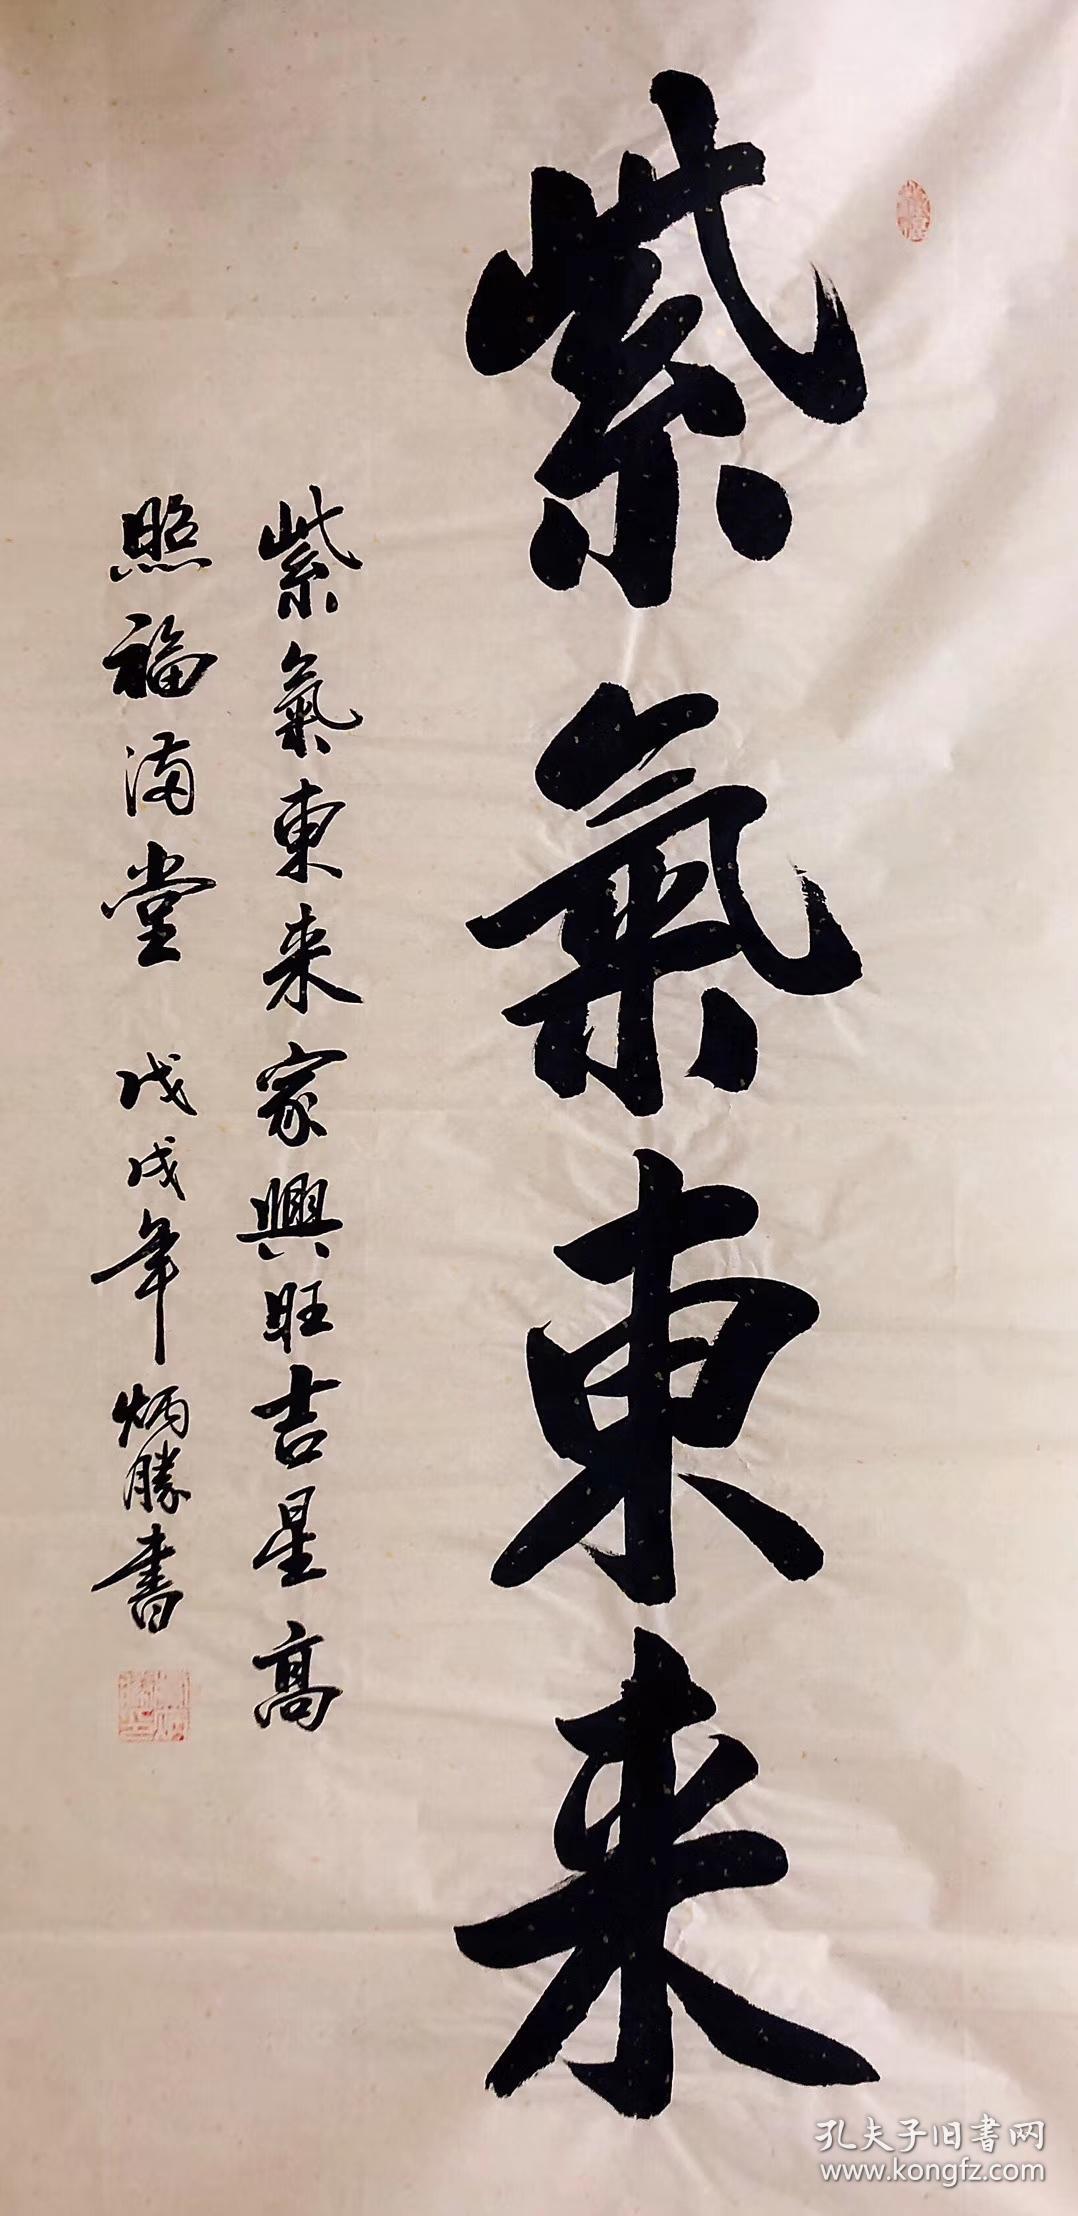 紫氣東来
紫氣東来家興旺吉星高
照福满堂 戊戌年炳勝書
孔夫子旧書网
www.kongfz.com